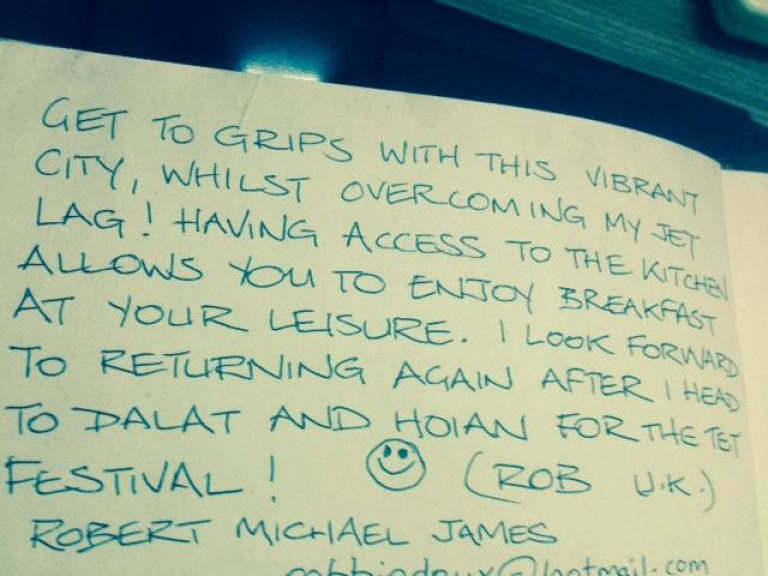 GET TO GRIPS WITH THIS VIBRANT
CITY, WHILST OVERCOMING MY JET
LAG! HAVING ACCESS TO THE KITCHEN
ALLOWS YOU TO ENJOY BREAKFAST
AT YOUR LEISURE. I LOOK FORWARD
TO RETURNING AGAIN AFTER I HEAD
TO DALAT AND HOIAN FOR THE TET
FESTIVAL! (ROB U.K.)
ROBERT MICHAEL JAMES